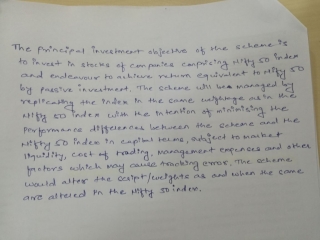 The principal investment objective of the scheme is
to invest in stocks of companies comprising Nifty 50 index
and endeavour to achieve return equivalent to Nifty 50
by passive investment. The scheme will be managed by
replicating the index in the same weightage as in the
Nifty 50 index with the intention of minimising the
performance differences between the scheme and the
Nifty 50 index in capital terms, subject to market
liquidity, cost of trading, management expenses and other
factors which may cause tracking error. The scheme
would alter the script/weights as and when the same
are altered in the Nifty 50 index.